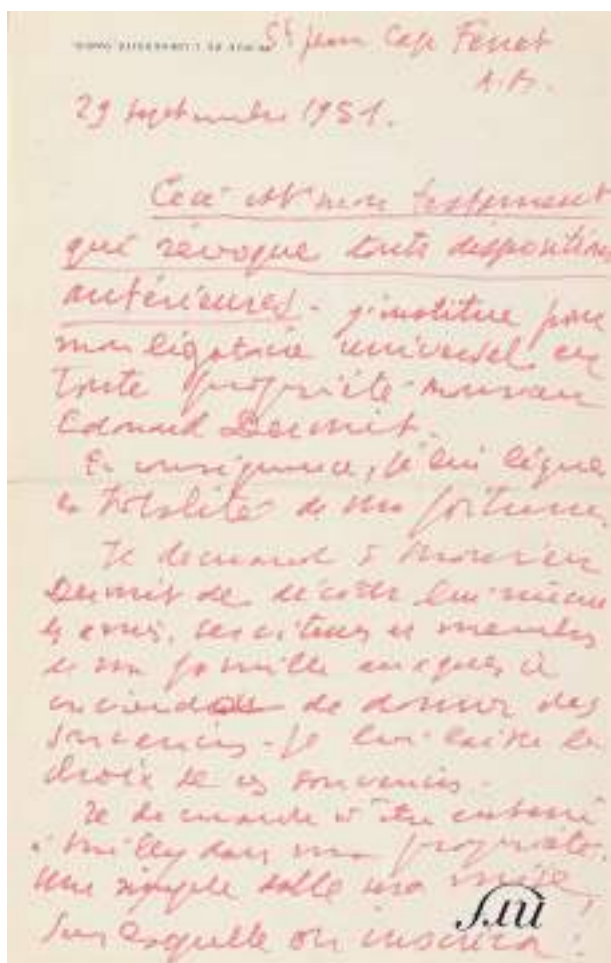 St Jean Cap Ferrat
A.M.
29 septembre 1951.
Ceci est mon testament
qui révoque toute disposition
antérieures. j'institue pour
mon légataire universel en
toute propriété monsieur
Edouard Dermit.
En conséquence, je lui lègue
la totalité de ma fortune
Je demande à Monsieur
Dermit de décider lui-même
les amis, serviteurs et membres
de ma famille auxquels il
de donner des
souvenirs. je lui laisse le
choix de ces souvenirs.
Je demande à être enterré
à Milly dans ma propriété.
Une simple dalle sera mise,
Sur laquelle on inscrira :